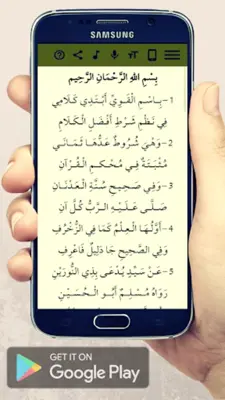 SAMSUNG
بِسْمِ اللهِ الرَّحْمَانِ الرَّحِيمِ
1- بِاسْمِ الْقَوِيِّ أَبْتَدِي كَلَامِي
فِي نَظْمِ شَرْطِ أَفْضَلِ الْكَلَامِ
2- وَهْيَ شُرُوطٌ عَدُّهَا ثَمَانِي
مُثْبَتَةٌ فِي مُحْكَمِ الْقُرْآنِ
3- وَفِي صَحِيحِ سُنَّةِ الْعَدْنَانِ
صَلَّى عَلَيْهِ الرَّبُّ كُلَّ آنِ
4- أَوَّلُهَا الْعِلْمُ كَمَا فِي الزُّخْرُفِ
وَفِي الصَّحِيحِ جَا دَلِيلٌ فَاعْرِفِ
5- عَنْ سَيِّدٍ يُدْعَى بِذِي النُّورَيْنِ
رَوَاهُ مُسْلِمٌ أَبُو الْحُسَيْنِ
GET IT ON
Google Play